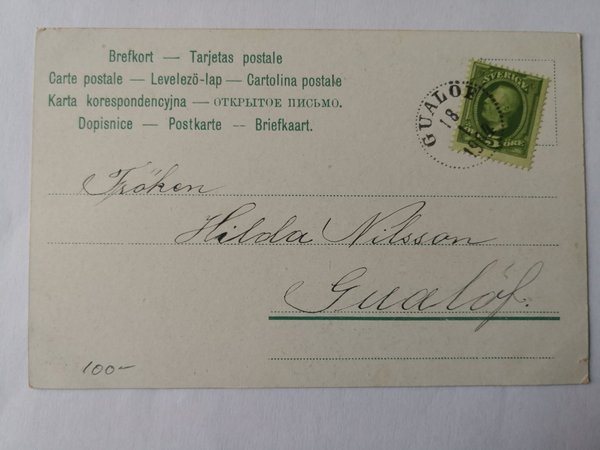 Brefkort — Tarjetas postale
Carte postale — Levelezö-lap — Cartolina postale
Karta korespondencyjna — ОТКРЫТОЕ ПИСЬМО.
Dopisnice — Postkarte — Briefkaart.
SVERIGE
5 ÖRE
GUALÖF
18
Fröken
Hilda Nilsson
Gualöf.
100-